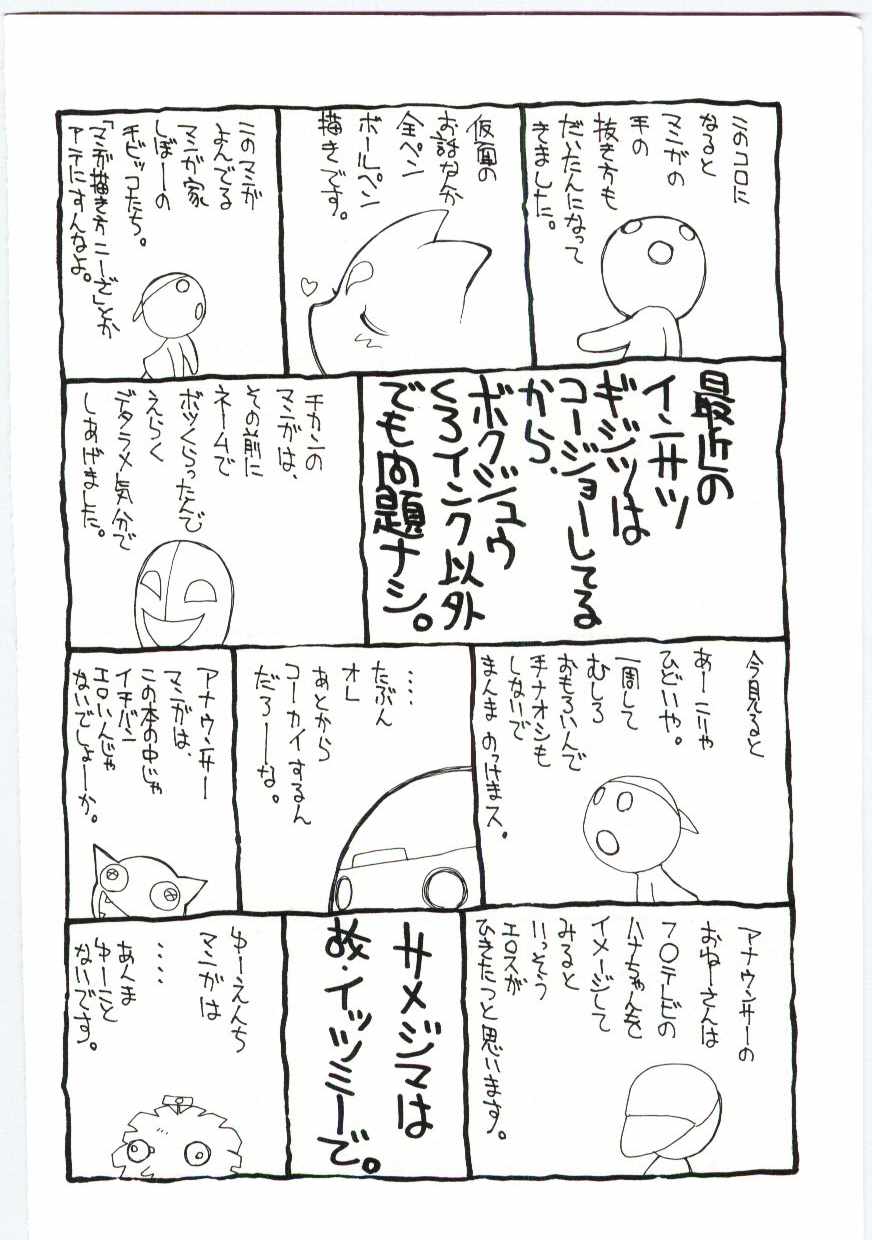 このコロに
なると
マンガの
手の
抜き方も
だいたんになって
きました。
仮面の
お話なんか
全ペン
ボールペン
描きです。
このマンガ
よんでる
マンガ家
しぼーの
チビッコたち。
「マンガ描き方こーざ」とか
アテにすんなよ。
最近の
インサツ
ギジツは
コージョーしてる
から、
ボクジュウ
くろインク以外
でも問題ナシ。
チカンの
マンガは、
その前に
ネームで
ボッくらったんで
えらく
デタラメ気分で
しあげました。
今見ると
あーこりゃ
ひどいや。
一周して
むしろ
おもろいんで
手ナオシも
しないで
まんまのっけまス。
‥‥
たぶん
オレ
あとから
コーカイするん
だろーな。
アナウンサー
マンガは、
この本の中じゃ
イチバン
エロいんじゃ
ないでしょーか。
アナウンサーの
おねーさんは
フ○テレビの
ハナちゃんを
イメージして
みると
いっそう
エロスが
ひきたつと思います。
サメジマは
故・イッツミーで。
ゆーえんち
マンガは
‥‥
あんま
ゆーこと
ないです。